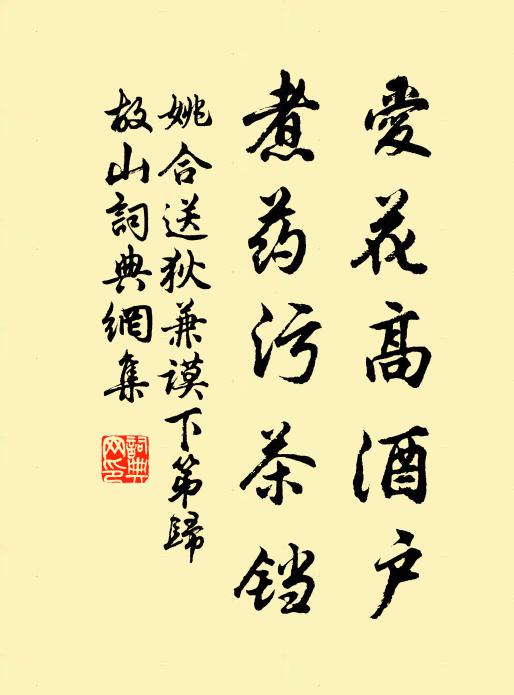 愛花高酒户
煮药污茶铛
姚合送狄兼谟下第歸
故山詞典網集
詞典网印